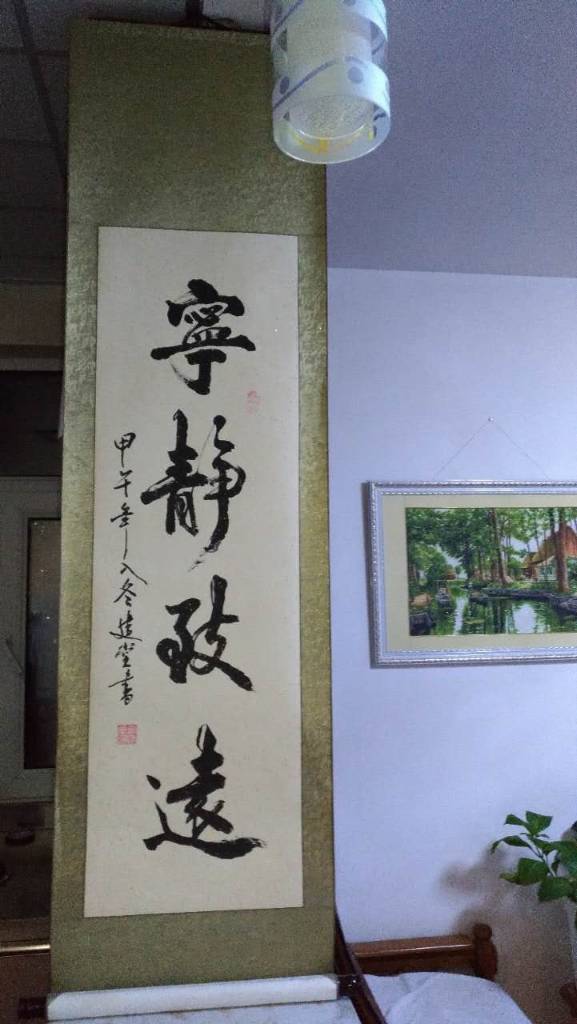 寧靜致遠
甲午年入冬建堂書